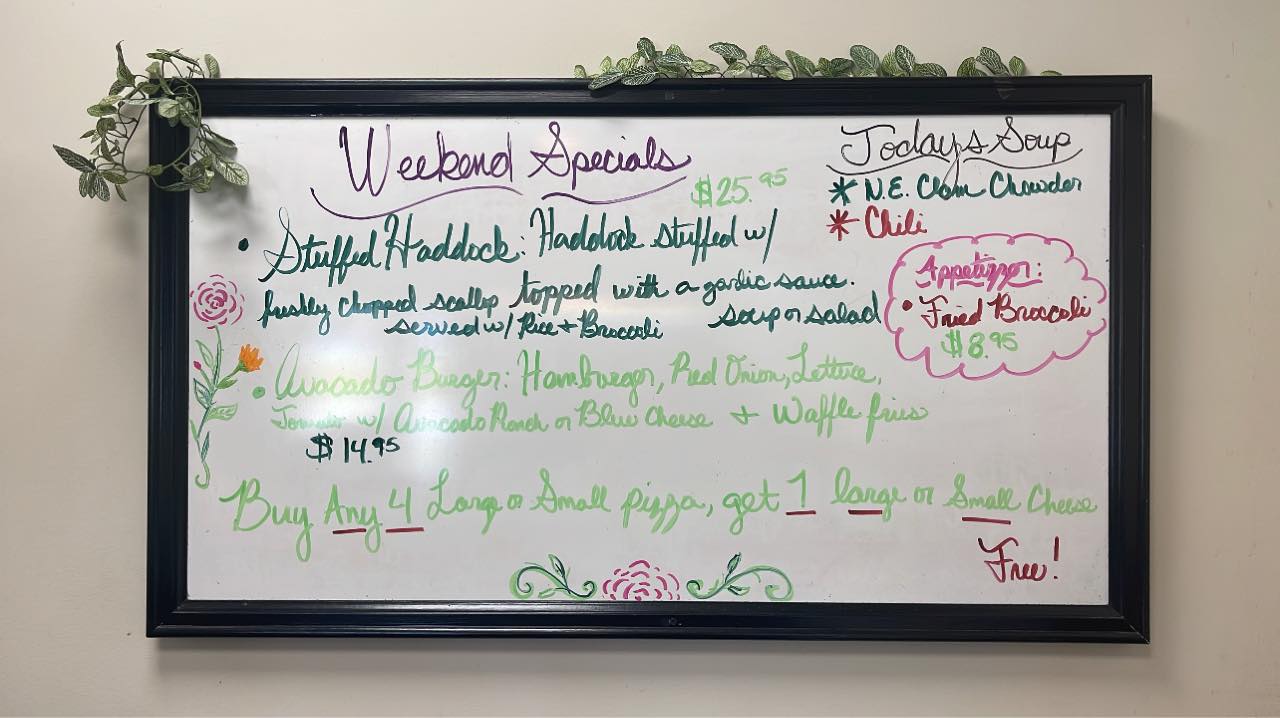 Weekend Specials
$25.95
• Stuffed Haddock: Haddock stuffed w/
freshly chopped scallop topped with a garlic sauce.
served w/ Rice + Broccoli soup or salad
• Avacado Burger: Hamburger, Red Onion, Lettuce,
Tomato w/ Avacado Ranch or Blue Cheese + Waffle fries
$14.95
Buy Any 4 Large or Small pizza, get 1 large or Small Cheese
Free!
Today's Soup
* N.E. Clam Chowder
* Chili
Appetizer:
• Fried Broccoli
$8.95